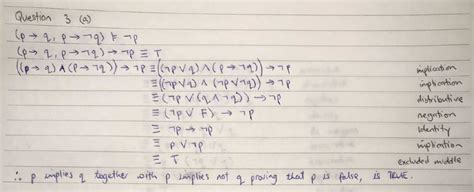 Question 3 (a)
(p → q, p → ¬q) ⊧ ¬p
(p → q, p → ¬q) → ¬p ≡ T
((p → q) ∧ (p → ¬q)) → ¬p ≡ ((¬p ∨ q) ∧ (p → ¬q)) → ¬p implication
≡ ((¬p ∨ q) ∧ (¬p ∨ ¬q)) → ¬p implication
≡ (¬p ∨ (q ∧ ¬q)) → ¬p distributive
≡ (¬p ∨ F) → ¬p negation
≡ ¬p → ¬p Identity
≡ p ∨ ¬p implication
≡ T excluded middle
∴ p implies q together with p implies not q proving that p is false, is TRUE.